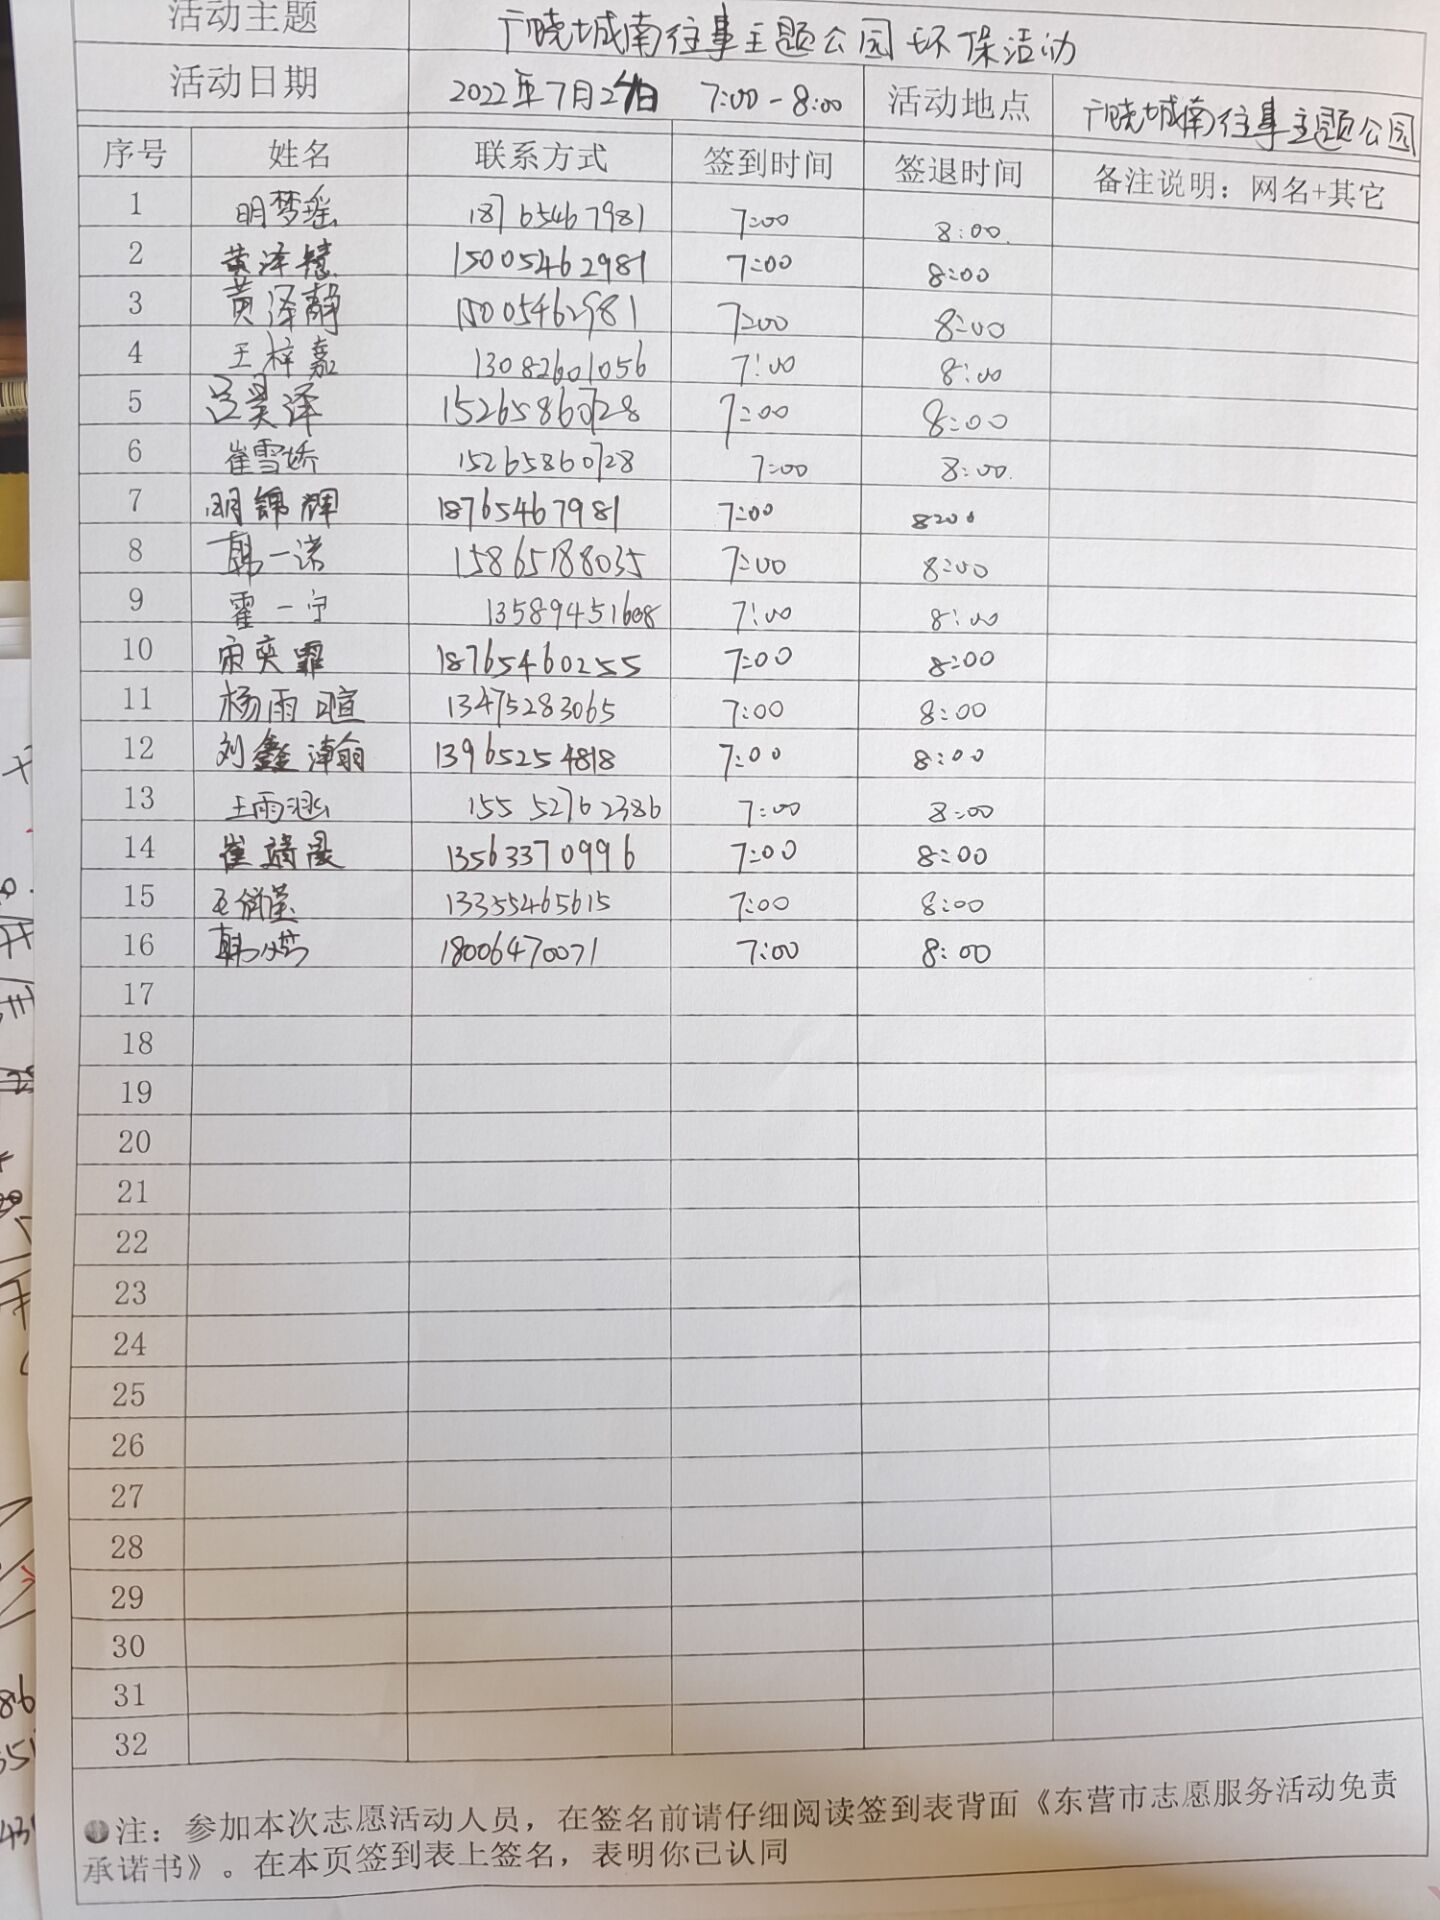 活动主题 广饶城南往事主题公园环保活动
活动日期 2022年7月2日 7:00-8:00 活动地点 广饶城南往事主题公园
序号 姓名 联系方式 签到时间 签退时间 备注说明：网名+其它
1 明梦瑶 18765467981 7:00 8:00
2 黄泽慧 15005462981 7:00 8:00
3 黄泽静 15005462981 7:00 8:00
4 王梓嘉 13082601056 7:00 8:00
5 吕昊泽 15265860728 7:00 8:00
6 崔雪娇 15265860728 7:00 8:00
7 明锦辉 18765467981 7:00 8:00
8 韩一诺 15865188035 7:00 8:00
9 霍一宁 13589451608 7:00 8:00
10 宋奕霏 18765460255 7:00 8:00
11 杨雨暄 13475283065 7:00 8:00
12 刘鑫瀚 13965254818 7:00 8:00
13 王雨涵 15552762386 7:00 8:00
14 崔靖晟 13563370996 7:00 8:00
15 13355465615 7:00 8:00
16 韩 18006470071 7:00 8:00
17
18
19
20
21
22
23
24
25
26
27
28
29
30
31
32
注：参加本次志愿活动人员，在签名前请仔细阅读签到表背面《东营市志愿服务活动免责
承诺书》。在本页签到表上签名，表明你已认同